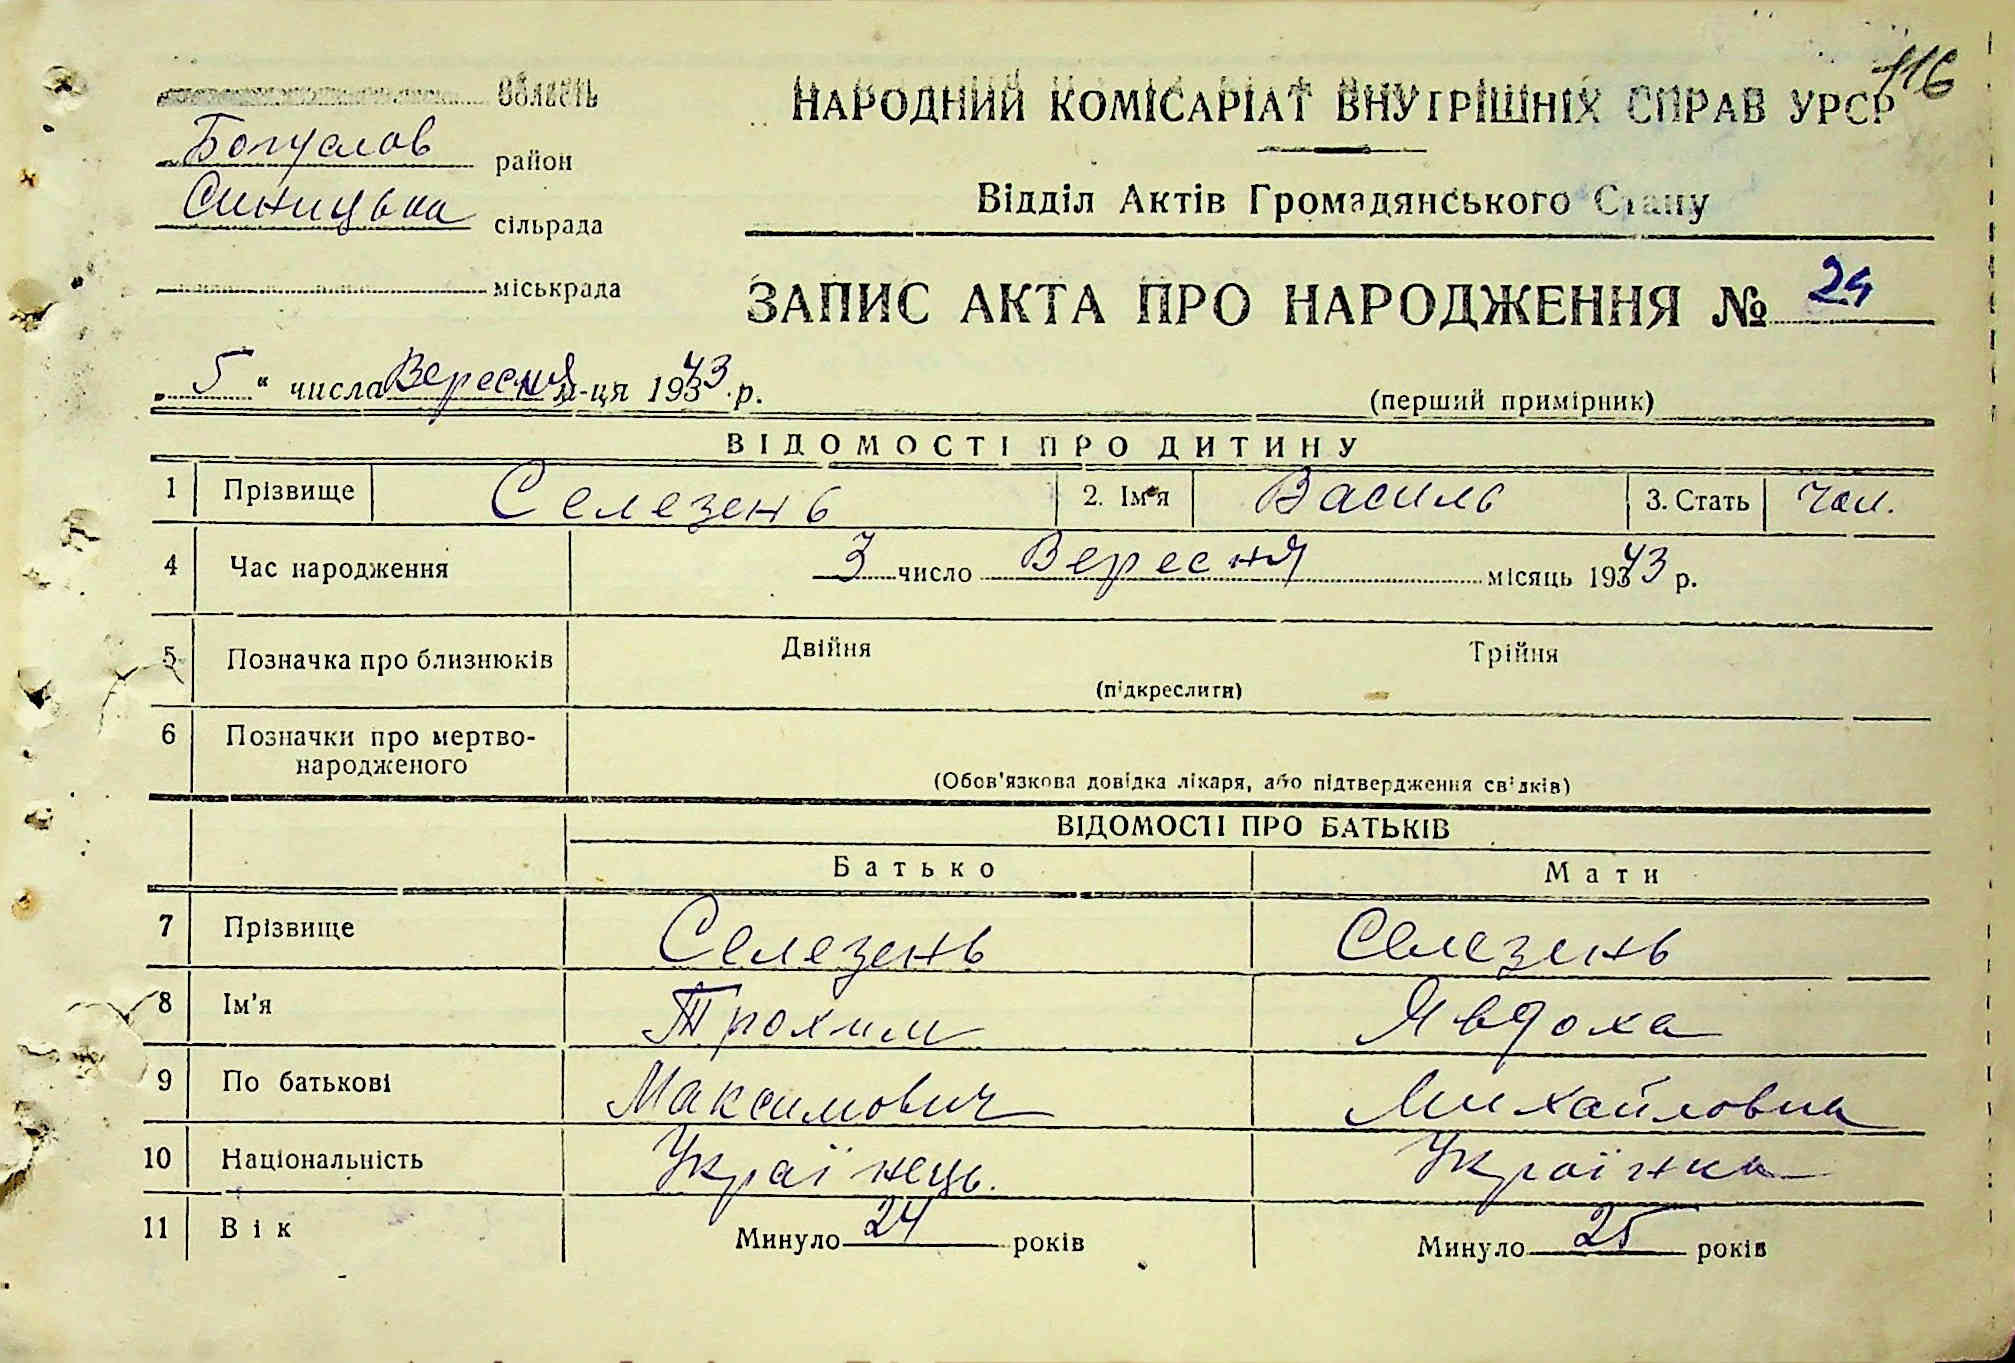 116
область
НАРОДНИЙ КОМІСАРІАТ ВНУТРІШНІХ СПРАВ УРСР
Богуслов район
Синицька сільрада
Відділ Актів Громадянського Стану
міськрада
ЗАПИС АКТА ПРО НАРОДЖЕННЯ № 24
"5" числа Вересня м-ця 1943 р.
(перший примірник)
ВІДОМОСТІ ПРО ДИТИНУ
1 Прізвище Селезень 2. Ім'я Василь 3. Стать чол.
4 Час народження 3 число Вересня місяць 1943 р.
5 Позначка про близнюків Двійня Трійня
(підкреслити)
6 Позначки про мертво-
народженого
(Обов'язкова довідка лікаря, або підтвердження свідків)
ВІДОМОСТІ ПРО БАТЬКІВ
Батько Мати
7 Прізвище Селезень Селезень
8 Ім'я Трохим Явдоха
9 По батькові Максимович Михайловна
10 Національність Українець. Українка
11 Вік Минуло 24 років Минуло 25 років